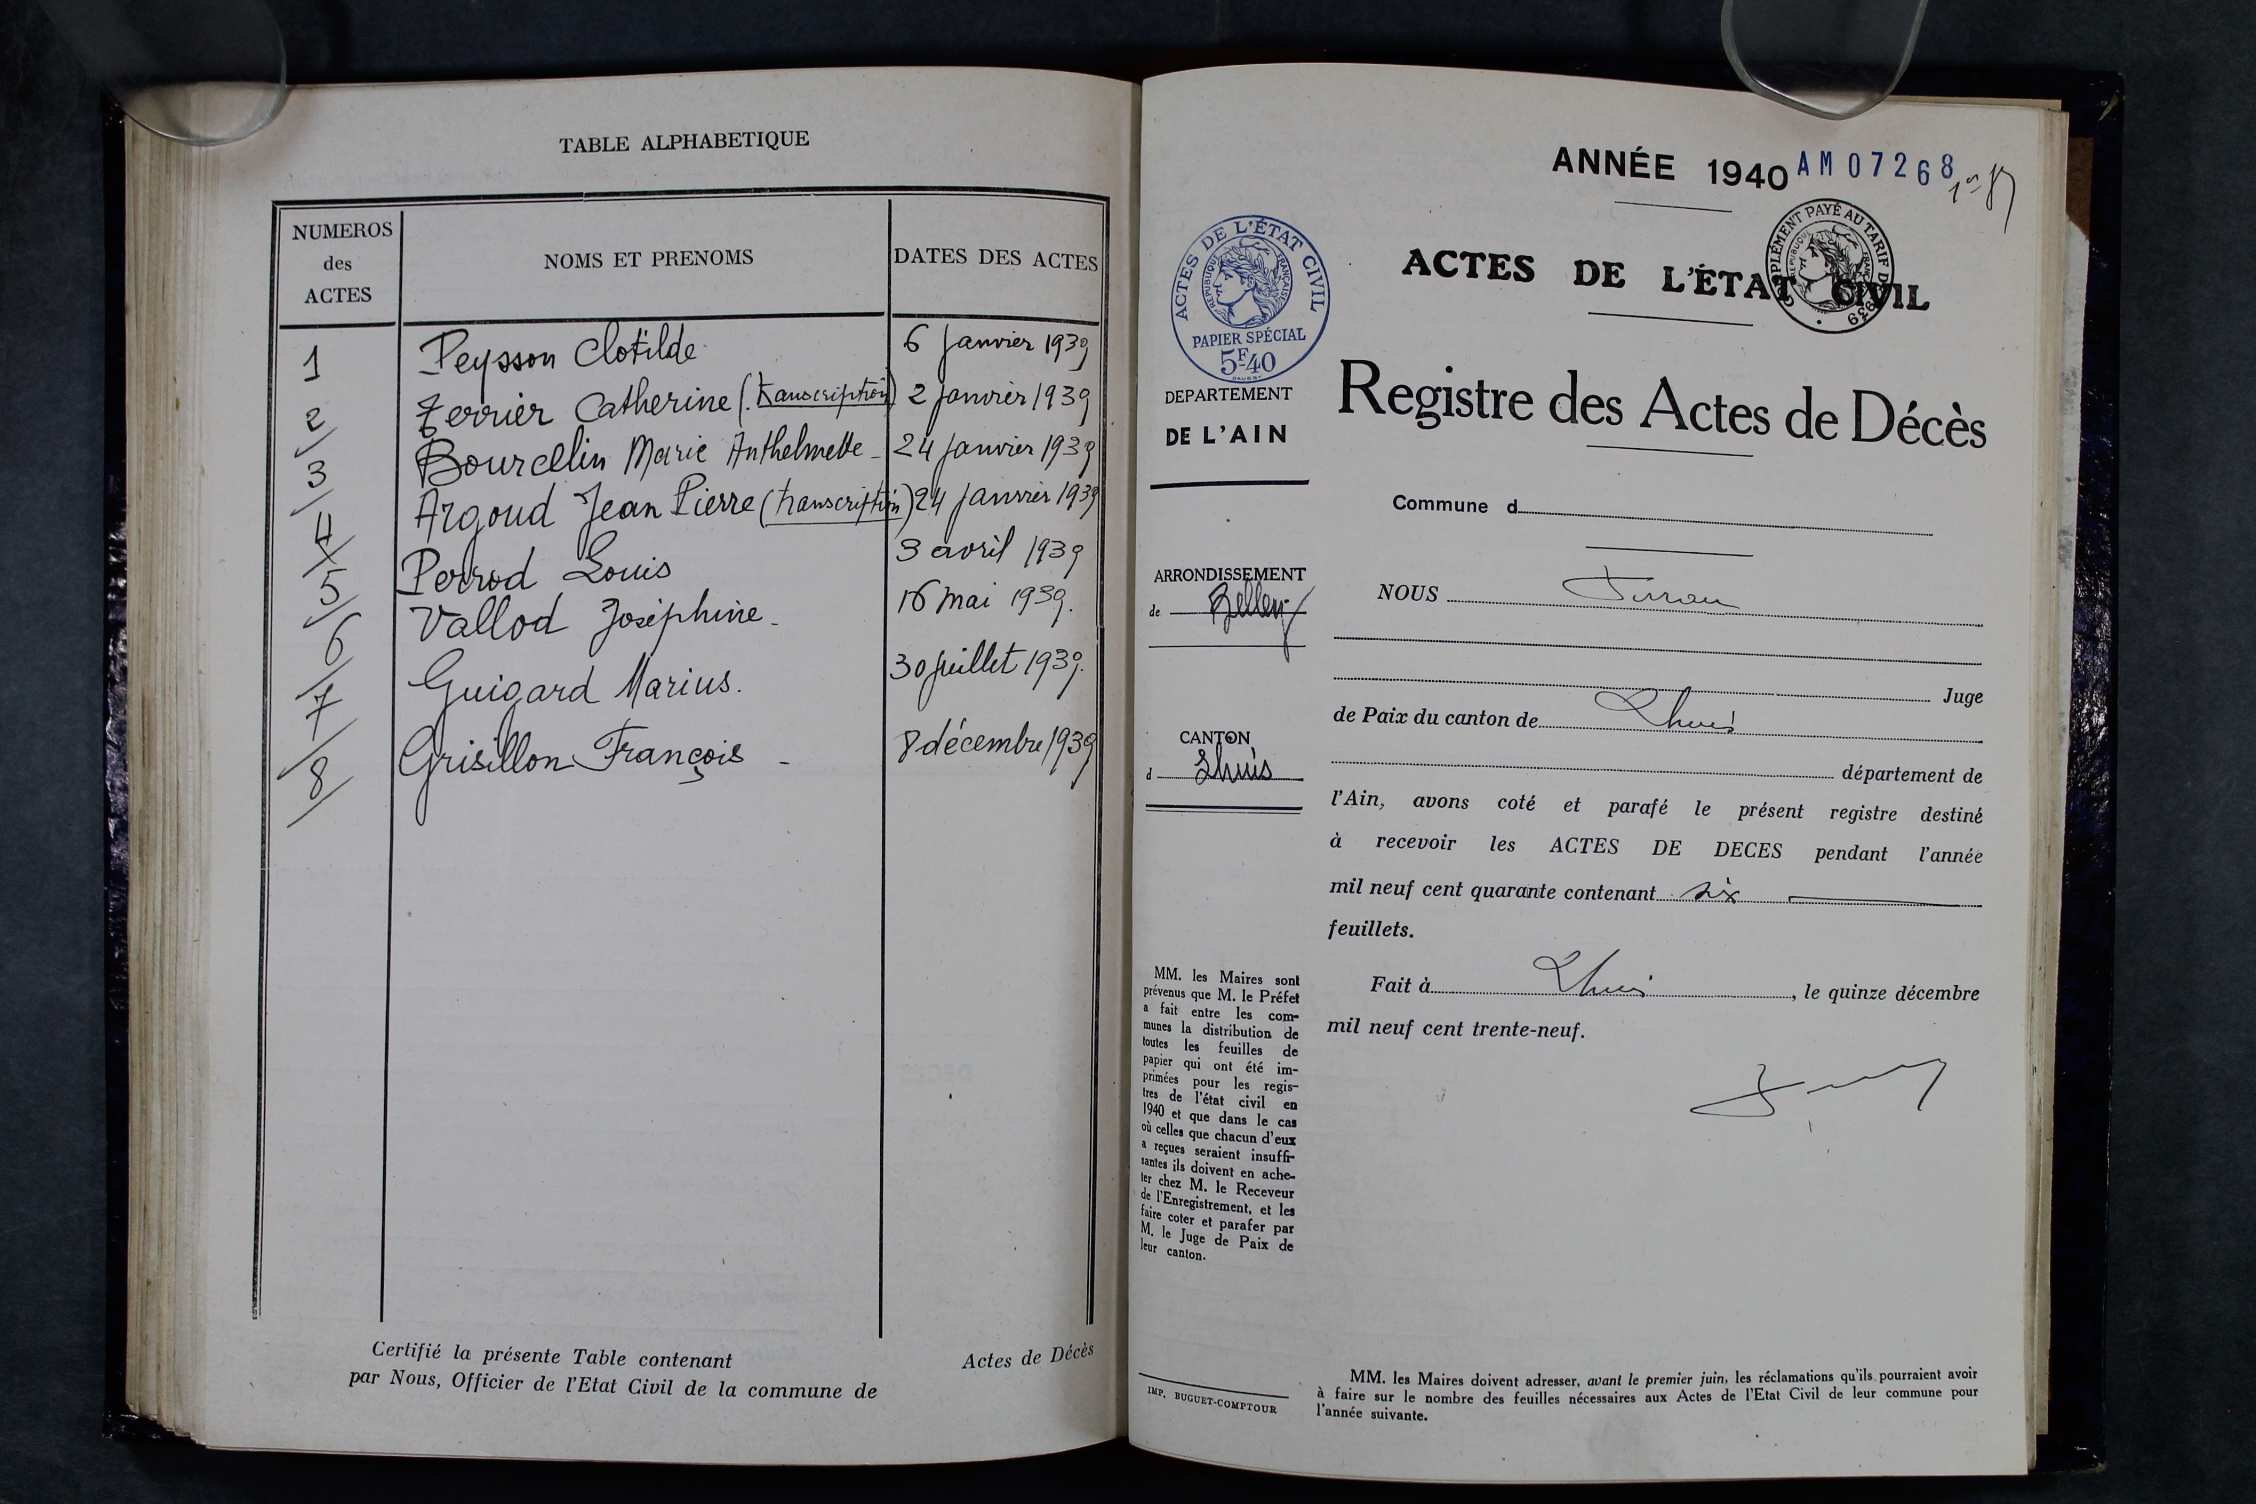 TABLE ALPHABETIQUE
NUMEROS
des
ACTES
NOMS ET PRENOMS
DATES DES ACTES
1 Peysson Clotilde 6 Janvier 1939
2 Ferrier Catherine (transcription) 2 Janvier 1939
3 Bourcelin Marie Anthelmette 24 Janvier 1939
4 Argoud Jean Pierre (transcription) 24 Janvier 1939
5 Perrod Louis 3 avril 1939
6 Vallod Joséphine 16 mai 1939.
7 Guigard Marius. 30 Juillet 1939.
8 Grisillon François 8 décembre 1939
Certifié la présente Table contenant Actes de Décès
par Nous, Officier de l'Etat Civil de la commune de
ANNÉE 1940
AM07268
ACTES DE L'ÉTAT CIVIL
RÉPUBLIQUE FRANÇAISE
PAPIER SPÉCIAL
5F40
SUPPLÉMENT PAYÉ AU TARIF DE 1939
ACTES DE L'ÉTAT CIVIL
Registre des Actes de Décès
DEPARTEMENT
DE L'AIN
ARRONDISSEMENT
de Belley
CANTON
d Lhuis
MM. les Maires sont
prévenus que M. le Préfet
a fait entre les com-
munes la distribution de
toutes les feuilles de
papier qui ont été im-
primées pour les regis-
tres de l'état civil en
1940 et que dans le cas
où celles que chacun d'eux
a reçues seraient insuffi-
santes ils doivent en ache-
ter chez M. le Receveur
de l'Enregistrement, et les
faire coter et parafer par
M. le Juge de Paix de
leur canton.
IMP. BUGUET-COMPTOUR
Commune d
NOUS
Juge
de Paix du canton de Lhuis
département de
l'Ain, avons coté et parafé le présent registre destiné
à recevoir les ACTES DE DECES pendant l'année
mil neuf cent quarante contenant six
feuillets.
Fait à Lhuis, le quinze décembre
mil neuf cent trente-neuf.
MM. les Maires doivent adresser, avant le premier juin, les réclamations qu'ils pourraient avoir
à faire sur le nombre des feuilles nécessaires aux Actes de l'Etat Civil de leur commune pour
l'année suivante.